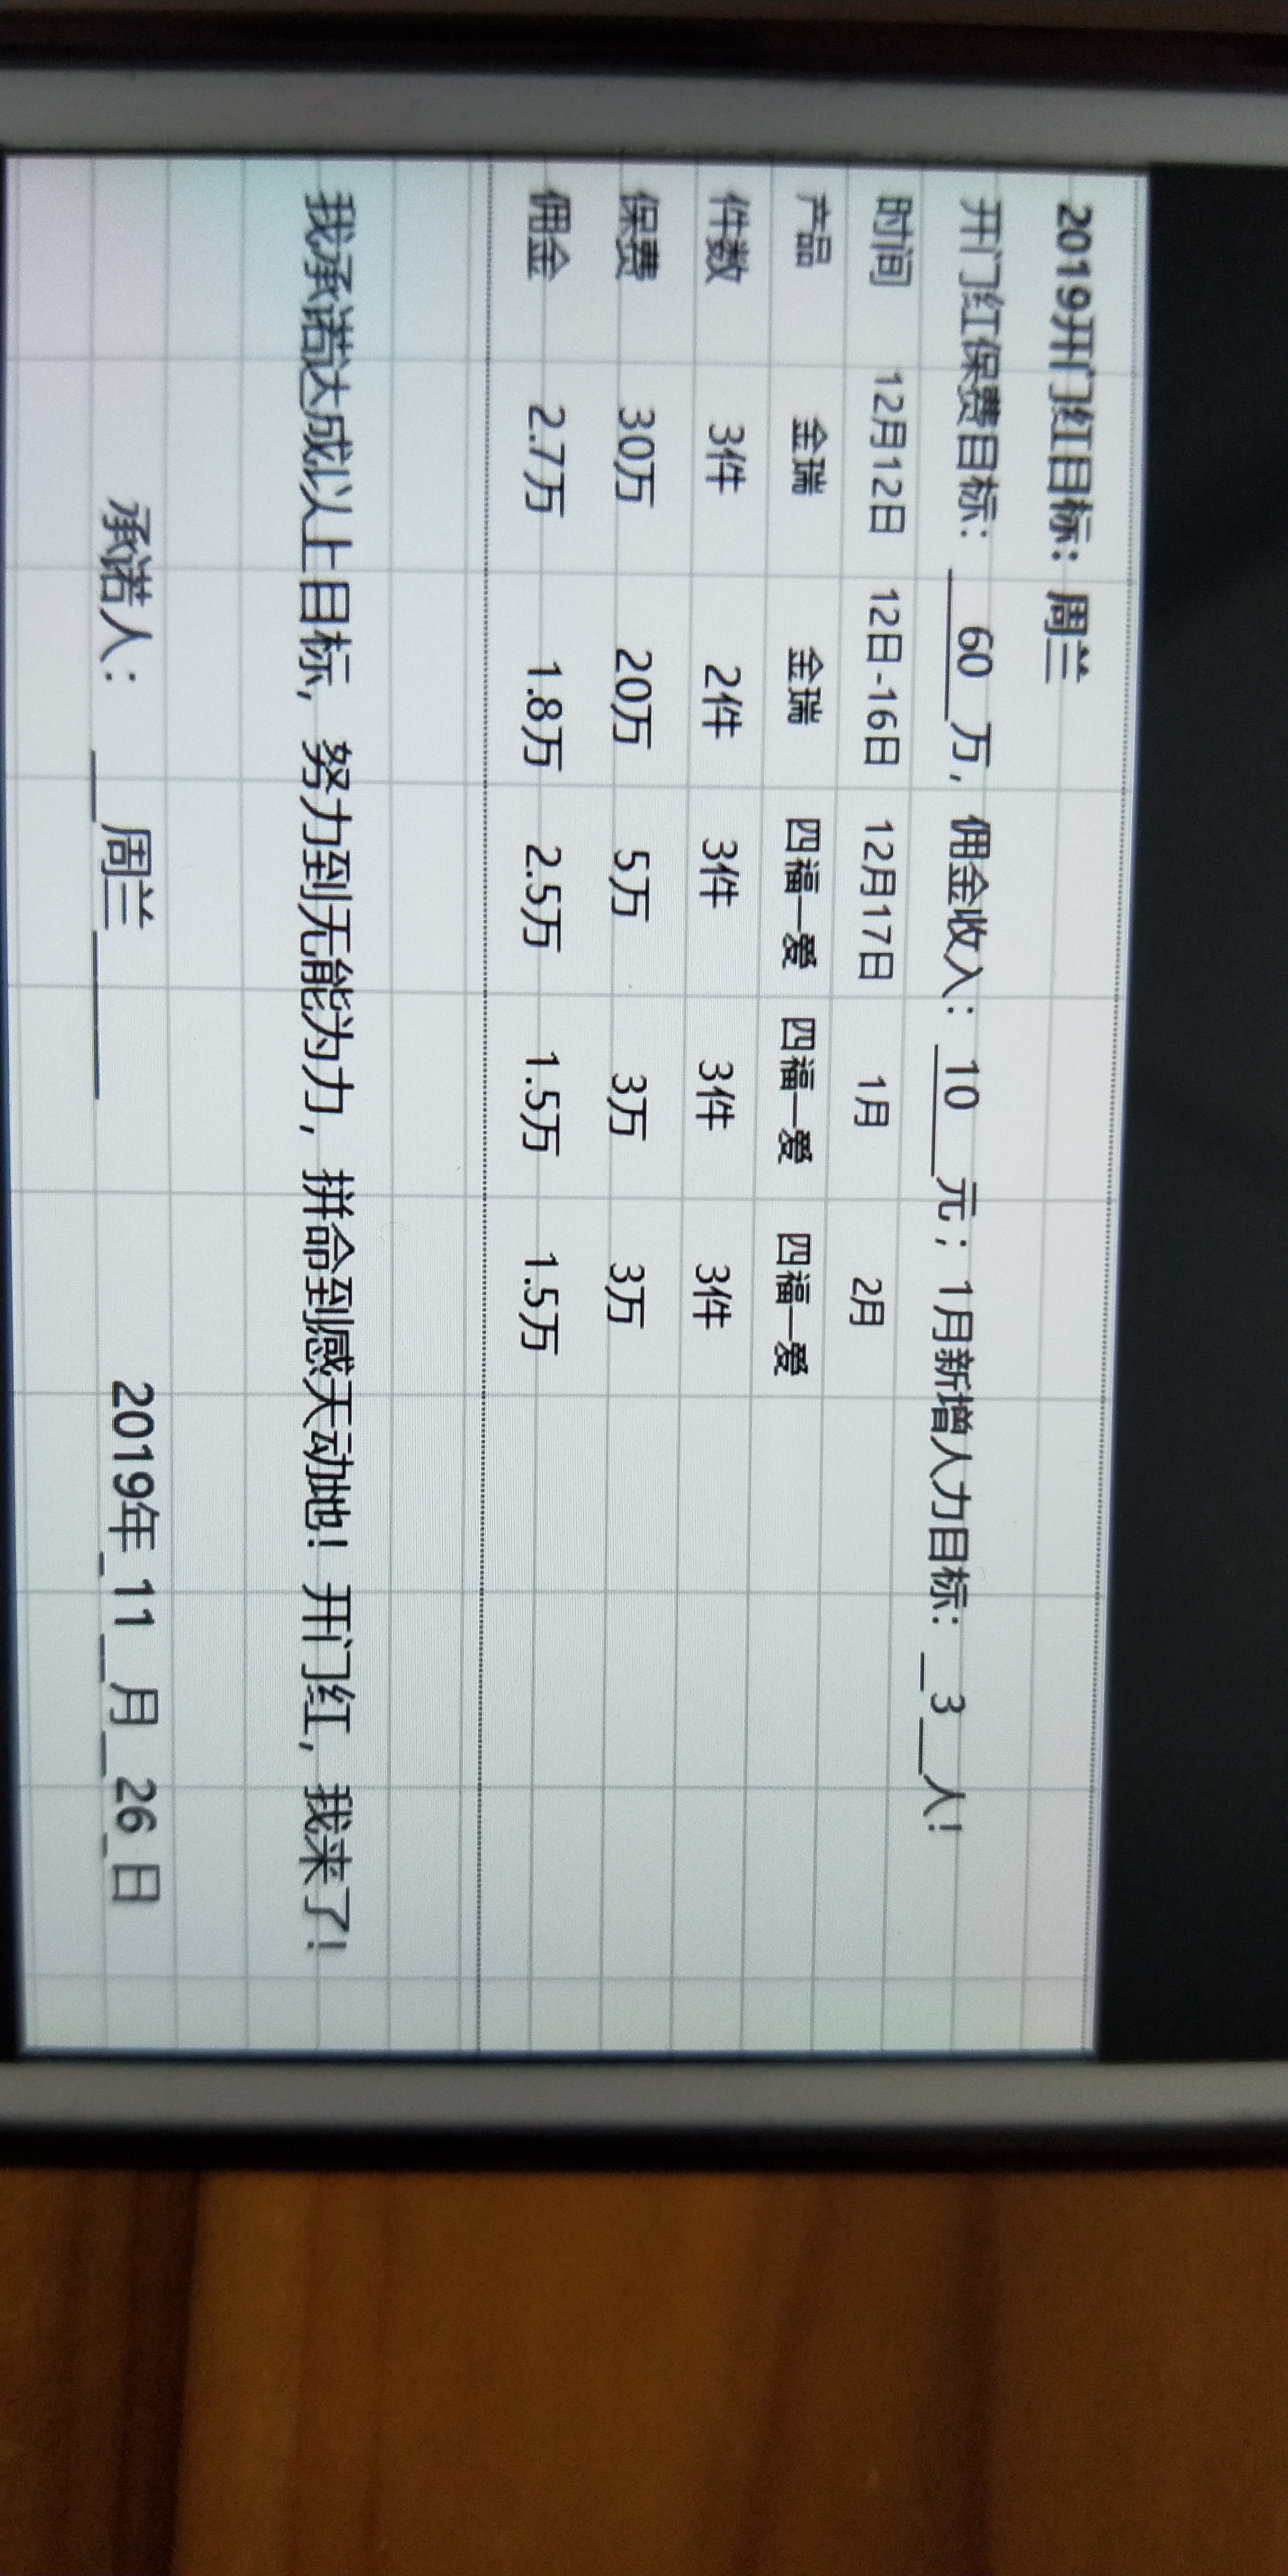 2019开门红目标：周兰
开门红保费目标：__60__万，佣金收入：_10__元；1月新增人力目标：_3__人！
时间 12月12日 12日-16日 12月17日 1月 2月
产品 金瑞 金瑞 四福一爱 四福一爱 四福一爱
件数 3件 2件 3件 3件 3件
保费 30万 20万 5万 3万 3万
佣金 2.7万 1.8万 2.5万 1.5万 1.5万
我承诺达成以上目标，努力到无能为力，拼命到感天动地！开门红，我来了！
承诺人：__周兰_____ 2019年_11__月__26_日